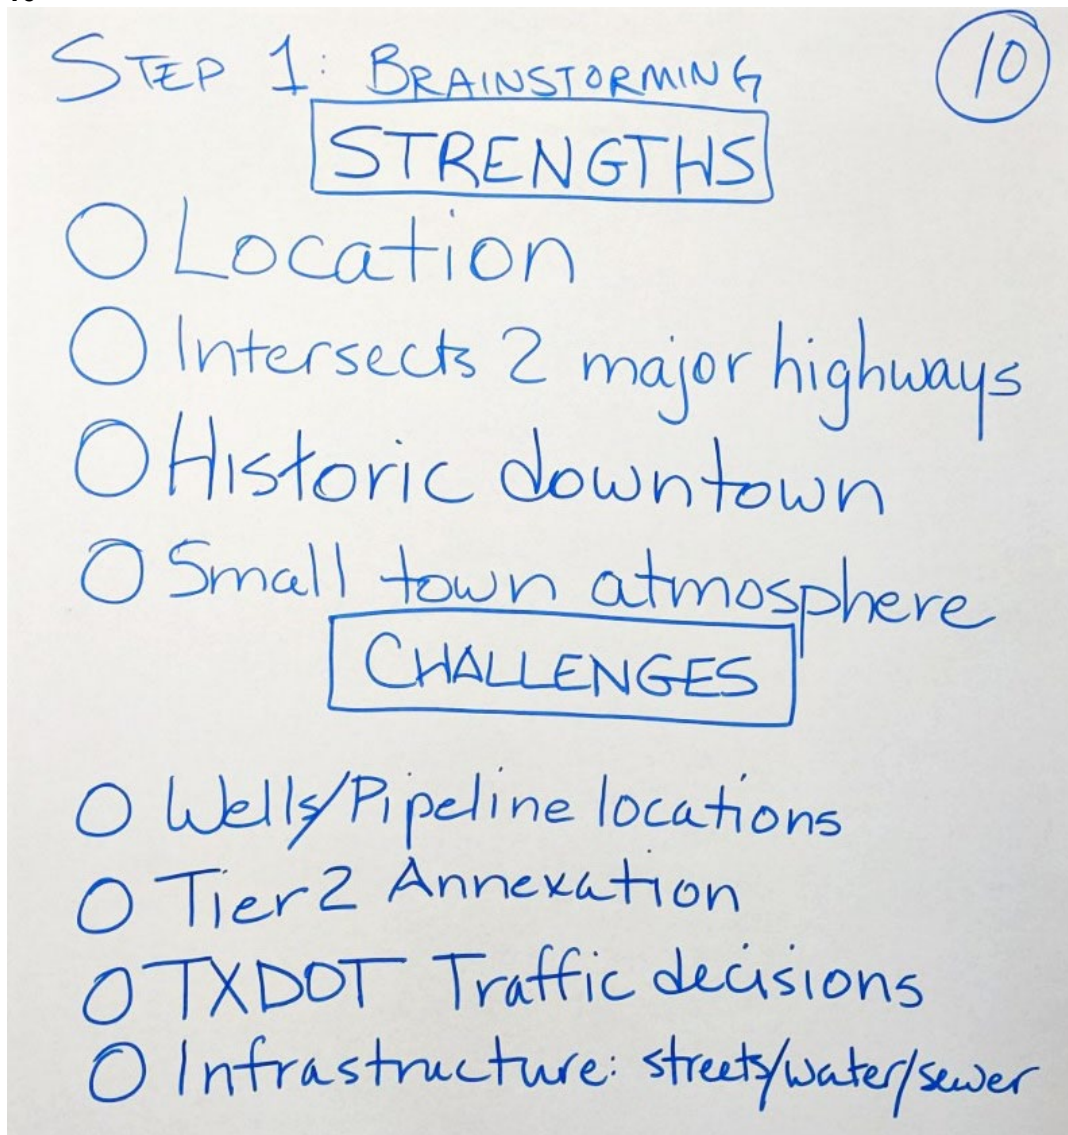 STEP 1: BRAINSTORMING
10
STRENGTHS
Location
Intersects 2 major highways
Historic downtown
Small town atmosphere
CHALLENGES
Wells/Pipeline locations
Tier 2 Annexation
TXDOT Traffic decisions
Infrastructure: streets/water/sewer